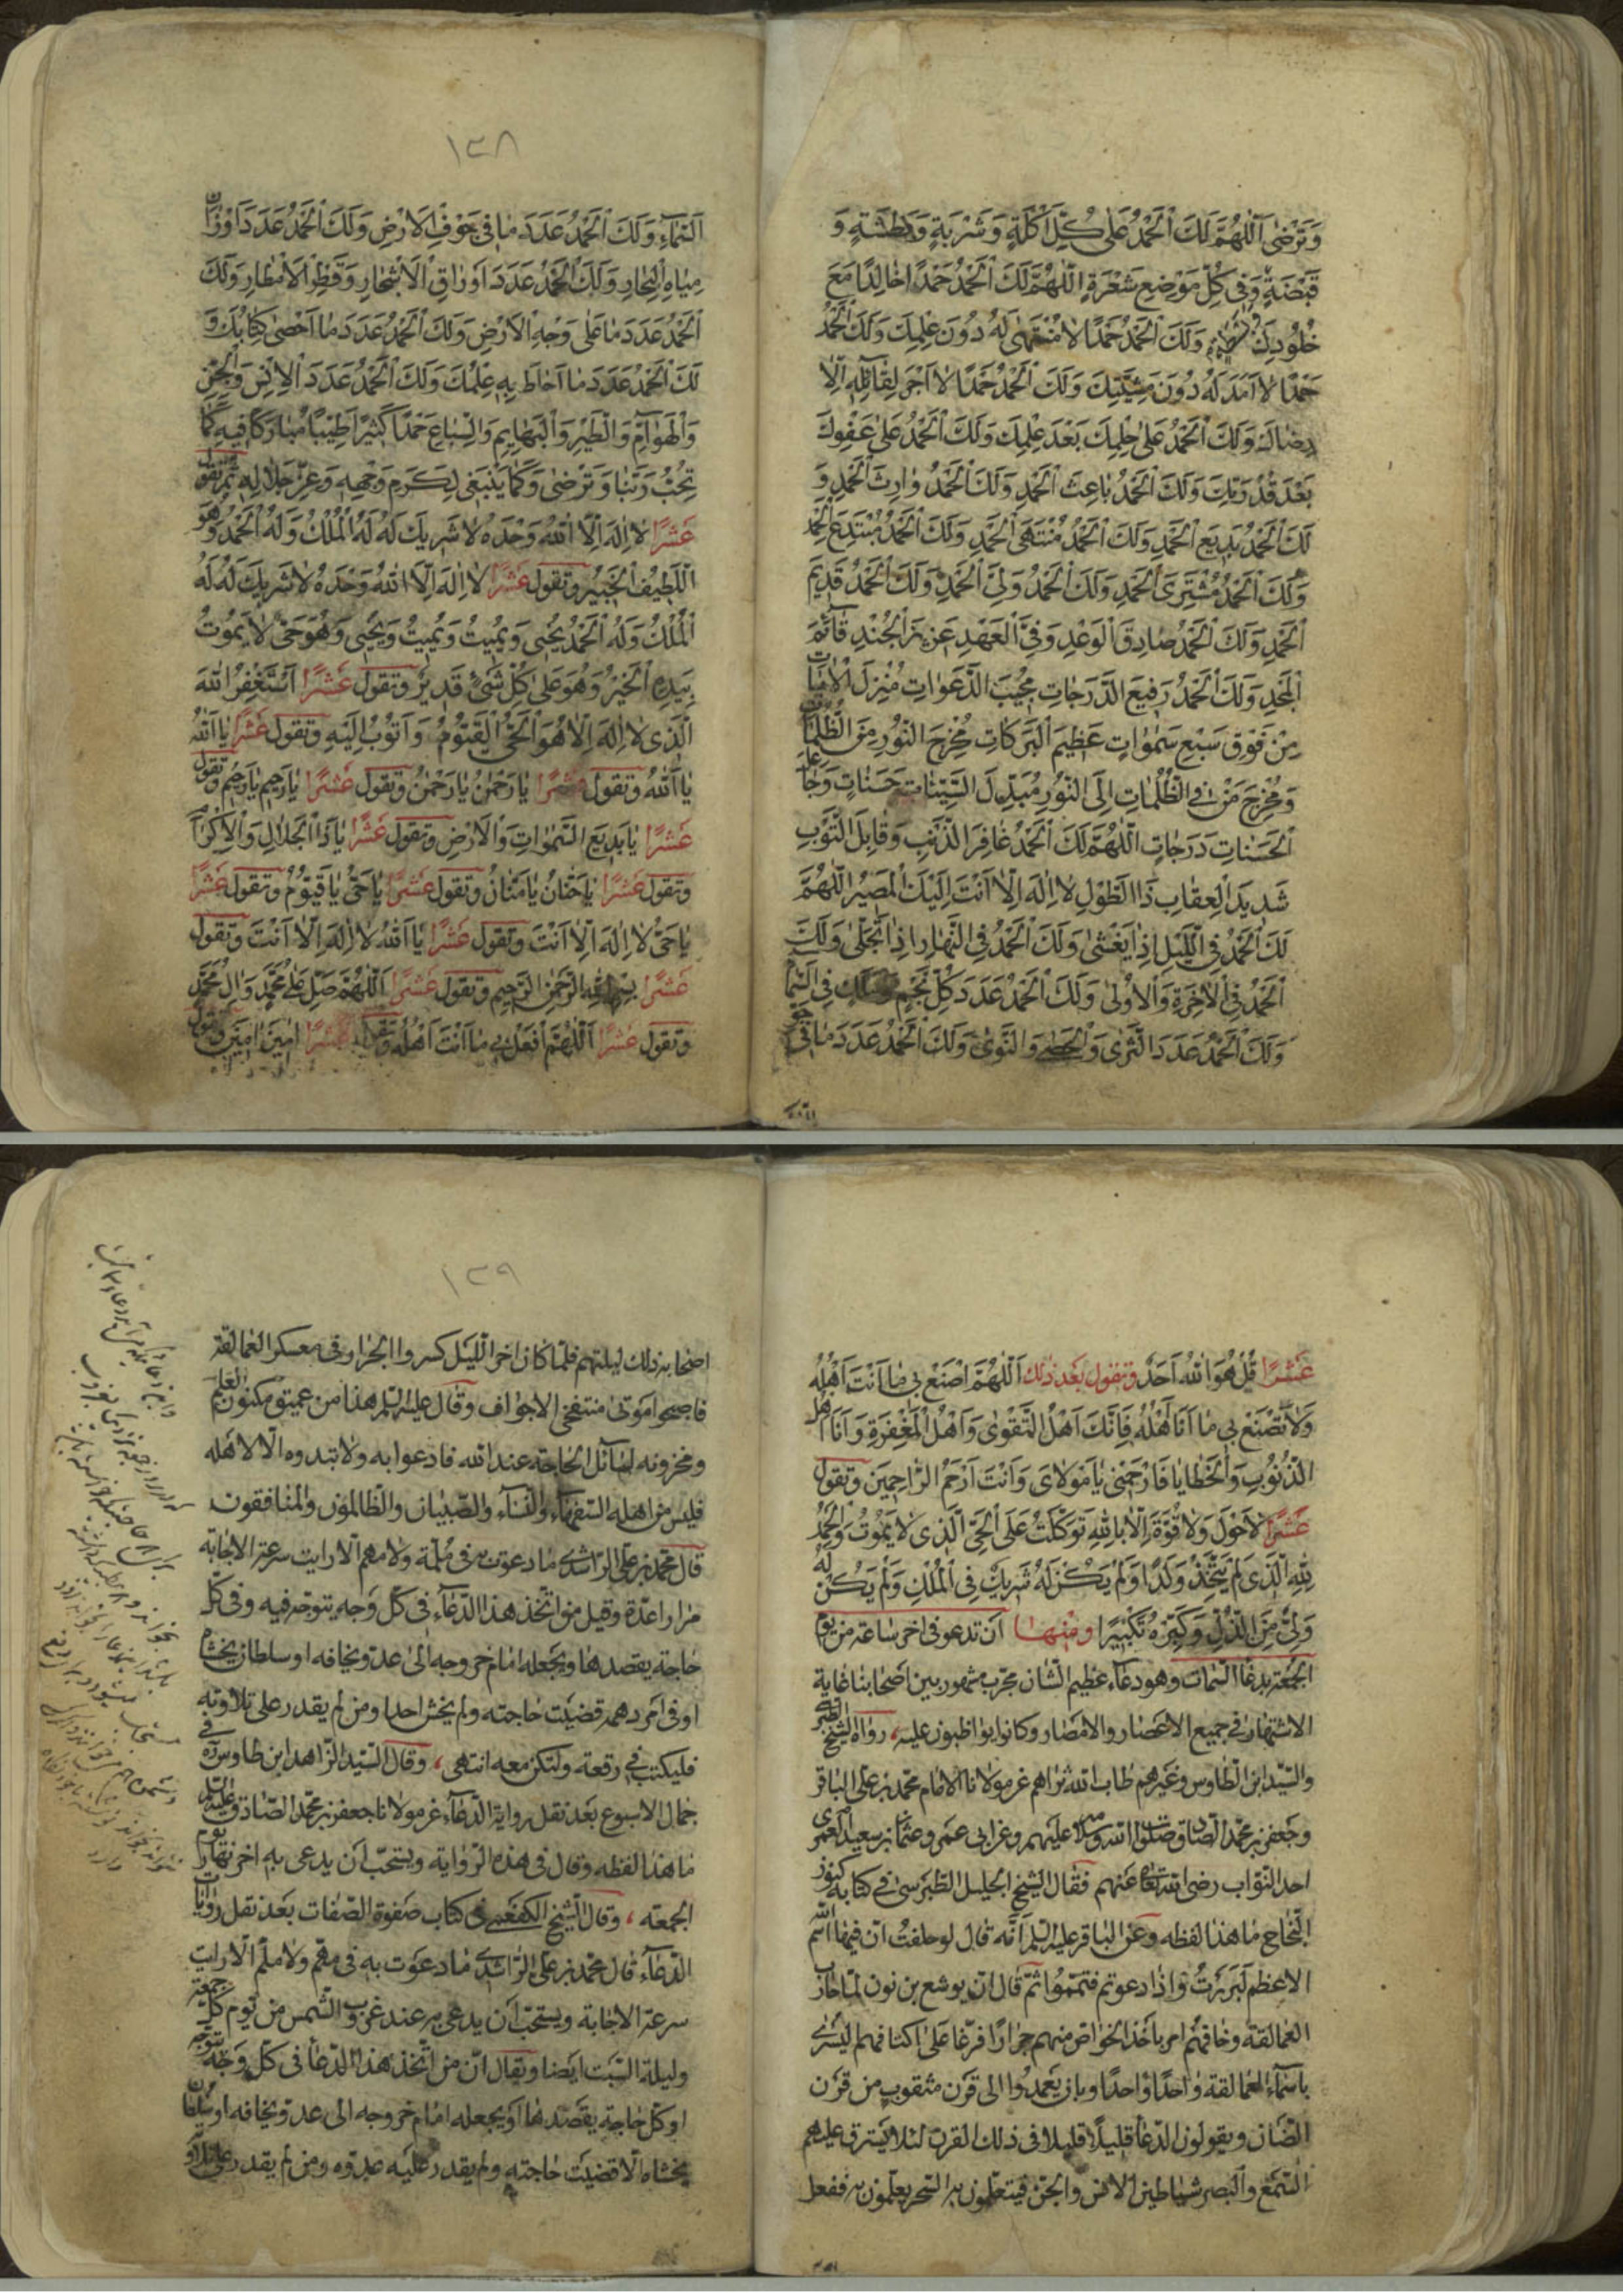 وَتَرْضىٰ اَللّٰهُمَّ لَكَ الْحَمْدُ عَلىٰ كُلِّ اَكْلَةٍ وَشَرْبَةٍ وَبَطْشَةٍ وَ
قَبْضَةٍ وَفى كُلِّ مَوْضِعِ شَعْرَةٍ اَللّٰهُمَّ لَكَ الْحَمْدُ حَمْدًا خٰالِدًا مَعَ
خُلُودِكَ وَلَكَ الْحَمْدُ حَمْدًا لاٰ مُنْتَهىٰ لَهُ دُونَ عِلْمِكَ وَلَكَ الْحَمْدُ
حَمْدًا لاٰ اَمَدَ لَهُ دُونَ مَشِيَّتِكَ وَلَكَ الْحَمْدُ حَمْدًا لاٰ اَجْرَ لِقٰائِلِهِ اِلاّٰ
رِضٰاكَ وَلَكَ الْحَمْدُ عَلىٰ حِلْمِكَ بَعْدَ عِلْمِكَ وَلَكَ الْحَمْدُ عَلىٰ عَفْوِكَ
بَعْدَ قُدْرَتِكَ وَلَكَ الْحَمْدُ بٰاعِثَ الْحَمْدِ وَلَكَ الْحَمْدُ وٰارِثَ الْحَمْدِ وَ
لَكَ الْحَمْدُ بَدِيعَ الْحَمْدِ وَلَكَ الْحَمْدُ مُنْتَهَى الْحَمْدِ وَلَكَ الْحَمْدُ مُبْتَدِعَ الْحَمْدِ
وَلَكَ الْحَمْدُ مُشْتَرِىَ الْحَمْدِ وَلَكَ الْحَمْدُ وَلِىَّ الْحَمْدِ وَلَكَ الْحَمْدُ قَدِيمَ
الْحَمْدِ وَلَكَ الْحَمْدُ صٰادِقَ الْوَعْدِ وَفِىَّ الْعَهْدِ عَزِيزَ الْجُنْدِ قٰائِمَ
الْمَجْدِ وَلَكَ الْحَمْدُ رَفِيعَ الدَّرَجٰاتِ مُجِيبَ الدَّعَوٰاتِ مُنْزِلَ الْاٰيٰاتِ
مِنْ فَوْقِ سَبْعِ سَمٰوٰاتٍ عَظِيمَ الْبَرَكٰاتِ مُخْرِجَ النُّورِ مِنَ الظُّلُمٰاتِ
وَمُخْرِجَ مَنْ فِى الظُّلُمٰاتِ اِلَى النُّورِ مُبَدِّلَ السَّيِّئٰاتِ حَسَنٰاتٍ وَجٰاعِلَ
الْحَسَنٰاتِ دَرَجٰاتٍ اَللّٰهُمَّ لَكَ الْحَمْدُ غٰافِرَ الذَّنْبِ وَقٰابِلَ التَّوْبِ
شَدِيدَ الْعِقٰابِ ذَا الطَّوْلِ لاٰ اِلٰهَ اِلاّٰ اَنْتَ اِلَيْكَ الْمَصِيرُ اَللّٰهُمَّ
لَكَ الْحَمْدُ فِى اللَّيْلِ اِذٰا يَغْشىٰ وَلَكَ الْحَمْدُ فِى النَّهٰارِ اِذٰا تَجَلّىٰ وَلَكَ
الْحَمْدُ فِى الْاٰخِرَةِ وَالْاُولىٰ وَلَكَ الْحَمْدُ عَدَدَ كُلِّ نَجْمٍ فِى السَّمٰاءِ
وَلَكَ الْحَمْدُ عَدَدَ الثَّرىٰ وَالْحَصىٰ وَالنَّوىٰ وَلَكَ الْحَمْدُ عَدَدَ مٰا فِى جَوِّ
١٣٨
السَّمٰاءِ وَلَكَ الْحَمْدُ عَدَدَ مٰا فِى جَوْفِ الْاَرْضِ وَلَكَ الْحَمْدُ عَدَدَ اَوْزٰانِ
مِيٰاهِ الْبِحٰارِ وَلَكَ الْحَمْدُ عَدَدَ اَوْرٰاقِ الْاَشْجٰارِ وَقَطْرِ الْاَمْطٰارِ وَلَكَ
الْحَمْدُ عَدَدَ مٰا عَلىٰ وَجْهِ الْاَرْضِ وَلَكَ الْحَمْدُ عَدَدَ مٰا اَحْصىٰ كِتٰابُكَ وَ
لَكَ الْحَمْدُ عَدَدَ مٰا اَحٰاطَ بِهِ عِلْمُكَ وَلَكَ الْحَمْدُ عَدَدَ الْاِنْسِ وَالْجِنِّ
وَالْهَوٰامِّ وَالطَّيْرِ وَالْبَهٰايِمِ وَالسِّبٰاعِ حَمْدًا كَثِيرًا طَيِّبًا مُبٰارَكًا فِيهِ كَمٰا
تُحِبُّ رَبَّنٰا وَتَرْضىٰ وَكَمٰا يَنْبَغِى لِكَرَمِ وَجْهِهِ وَعِزِّ جَلاٰلِهِ ثم تقول
عَشْرًا لاٰ اِلٰهَ اِلاَّ اللّٰهُ وَحْدَهُ لاٰ شَرِيكَ لَهُ لَهُ الْمُلْكُ وَلَهُ الْحَمْدُ وَهُوَ
اللَّطِيفُ الْخَبِيرُ وتقول عَشْرًا لاٰ اِلٰهَ اِلاَّ اللّٰهُ وَحْدَهُ لاٰ شَرِيكَ لَهُ لَهُ
الْمُلْكُ وَلَهُ الْحَمْدُ يُحْيِى وَيُمِيتُ وَيُمِيتُ وَيُحْيِى وَهُوَ حَىٌّ لاٰ يَمُوتُ
بِيَدِهِ الْخَيْرُ وَهُوَ عَلىٰ كُلِّ شَىْءٍ قَدِيرٌ وتقول عَشْرًا اَسْتَغْفِرُ اللّٰهَ
الَّذِى لاٰ اِلٰهَ اِلاّٰ هُوَ الْحَىُّ الْقَيُّومُ وَاَتُوبُ اِلَيْهِ وتقول عَشْرًا يٰا اَللّٰهُ
يٰا اَللّٰهُ وتقول عَشْرًا يٰا رَحْمٰنُ يٰا رَحْمٰنُ وتقول عَشْرًا يٰا رَحِيمُ يٰا رَحِيمُ وتقول
عَشْرًا يٰا بَدِيعَ السَّمٰوٰاتِ وَالْاَرْضِ وتقول عَشْرًا يٰا ذَا الْجَلاٰلِ وَالْاِكْرٰامِ
وتقول عَشْرًا يٰا حَنّٰانُ يٰا مَنّٰانُ وتقول عَشْرًا يٰا حَىُّ يٰا قَيُّومُ وتقول عَشْرًا
يٰا حَىُّ لاٰ اِلٰهَ اِلاّٰ اَنْتَ وتقول عَشْرًا يٰا اَللّٰهُ لاٰ اِلٰهَ اِلاّٰ اَنْتَ وتقول
عَشْرًا بِسْمِ اللّٰهِ الرَّحْمٰنِ الرَّحِيمِ وتقول عَشْرًا اَللّٰهُمَّ صَلِّ عَلىٰ مُحَمَّدٍ وَاٰلِ مُحَمَّدٍ
وتقول عَشْرًا اَللّٰهُمَّ افْعَلْ بِى مٰا اَنْتَ اَهْلُهُ وتقول عَشْرًا اٰمِينَ اٰمِينَ وتقول
عَشْرًا قُلْ هُوَ اللّٰهُ اَحَدٌ وتقول بعد ذلك اَللّٰهُمَّ اصْنَعْ بِى مٰا اَنْتَ اَهْلُهُ
وَلاٰ تَصْنَعْ بِى مٰا اَنَا اَهْلُهُ فَاِنَّكَ اَهْلُ التَّقْوىٰ وَاَهْلُ الْمَغْفِرَةِ وَاَنَا اَهْلُ
الذُّنُوبِ وَالْخَطٰايٰا فَارْحَمْنِى يٰا مَوْلاٰىَ وَاَنْتَ اَرْحَمُ الرّٰاحِمِينَ وتقول
عَشْرًا لاٰ حَوْلَ وَلاٰ قُوَّةَ اِلاّٰ بِاللّٰهِ تَوَكَّلْتُ عَلَى الْحَىِّ الَّذِى لاٰ يَمُوتُ وَالْحَمْدُ
لِلّٰهِ الَّذِى لَمْ يَتَّخِذْ وَلَدًا وَلَمْ يَكُنْ لَهُ شَرِيكٌ فِى الْمُلْكِ وَلَمْ يَكُنْ لَهُ
وَلِىٌّ مِنَ الذُّلِّ وَكَبِّرْهُ تَكْبِيرًا ومنها ان تدعو فى اخر ساعة من يوم
الجمعة بدعاء السمات وهو دعاء عظيم الشان مجرب مشهور بين اصحابنا غاية
الاشتهار فى جميع الاعصار والامصار وكانوا يواظبون عليه، رواه الشيخ الطبرسى
والسيد ابن الطاوس وغيرهم طاب الله ثراهم عن مولانا الامام محمد بن على الباقر
وجعفر بن محمد الصادق صلوات الله وسلامه عليهم وعن ابى عمرو عثمان بن سعيد العمرى
احد النواب رضى الله تعالى عنهم فقال الشيخ الجليل الطبرسى فى كتابه كنوز
النجاح ما هذا لفظه وعن الباقر عليه السلم انه قال لو حلفت ان فيها اسم الله
الاعظم لبررت واذا دعوتم فتمموا ثم قال ان يوشع بن نون لما حارب
العمالقة وخافهم امر باخذ الخواص منهم جرارا فرغا على اكتافهم ليسرى
باسماء العمالقة واحدا واحدا وبان يعمدوا الى قرن مثقوب من قرن
الضان ويقولون الدعاء قليلا قليلا فى ذلك القرن لئلا يسترق عليهم
السمع والبصر شياطين الانس والجن فيتعلمون به السحر يعلمون به ففعل
١٣٩
اصحابه ذلك ليلتهم فلما كان اخر الليل كسروا الجرار فى معسكر العمالقة
فاصبحوا موتى منتفخى الاجواف وقال عليه السلم هذا من عميق مكنون العلم
ومخزونه لسائل الحاجة عند الله فادعوا به ولا تبدوه الا لاهله
فليس من اهله السفهاء والنساء والصبيان والظالمون والمنافقون
قال محمد بن على الراشدى ما دعوت به فى ملمة ولا مهم الا رايت سرعة الاجابة
مرارا عدة وقيل من اتخذ هذا الدعاء فى كل وجه يتوجه فيه وفى كل
حاجة يقصدها ويجعله امام خروجه الى عدو يخافه او سلطان يخشاه
او فى امر دهمه قضيت حاجته ولم يخش احدا ومن لم يقدر على تلاوته
فليكتب فى رقعة ولتكن معه انتهى، وقال السيد الزاهد ابن طاوس ره فى
جمال الاسبوع بعد نقل رواية الدعاء عن مولانا جعفر بن محمد الصادق عليه السلم
ما هذا لفظه وقال فى هذه الرواية ويستحب ان يدعى به اخر نهار يوم
الجمعة، وقال الشيخ الكفعمى فى كتاب صفوة الصفات بعد نقل روايات
الدعاء قال محمد بن على الراشدى ما دعوت به فى مهم ولا ملم الا رايت
سرعة الاجابة ويستحب ان يدعى به عند غروب الشمس من يوم كل جمعة
وليلة السبت ايضا ويقال ان من اتخذ هذا الدعاء فى كل وجه يتوجه
او كل حاجة يقصدها او يجعله امام خروجه الى عدو يخافه او سلطان
يخشاه الا قضيت حاجته ولم يقدر عليه عدوه ومن لم يقدر على تلاوته